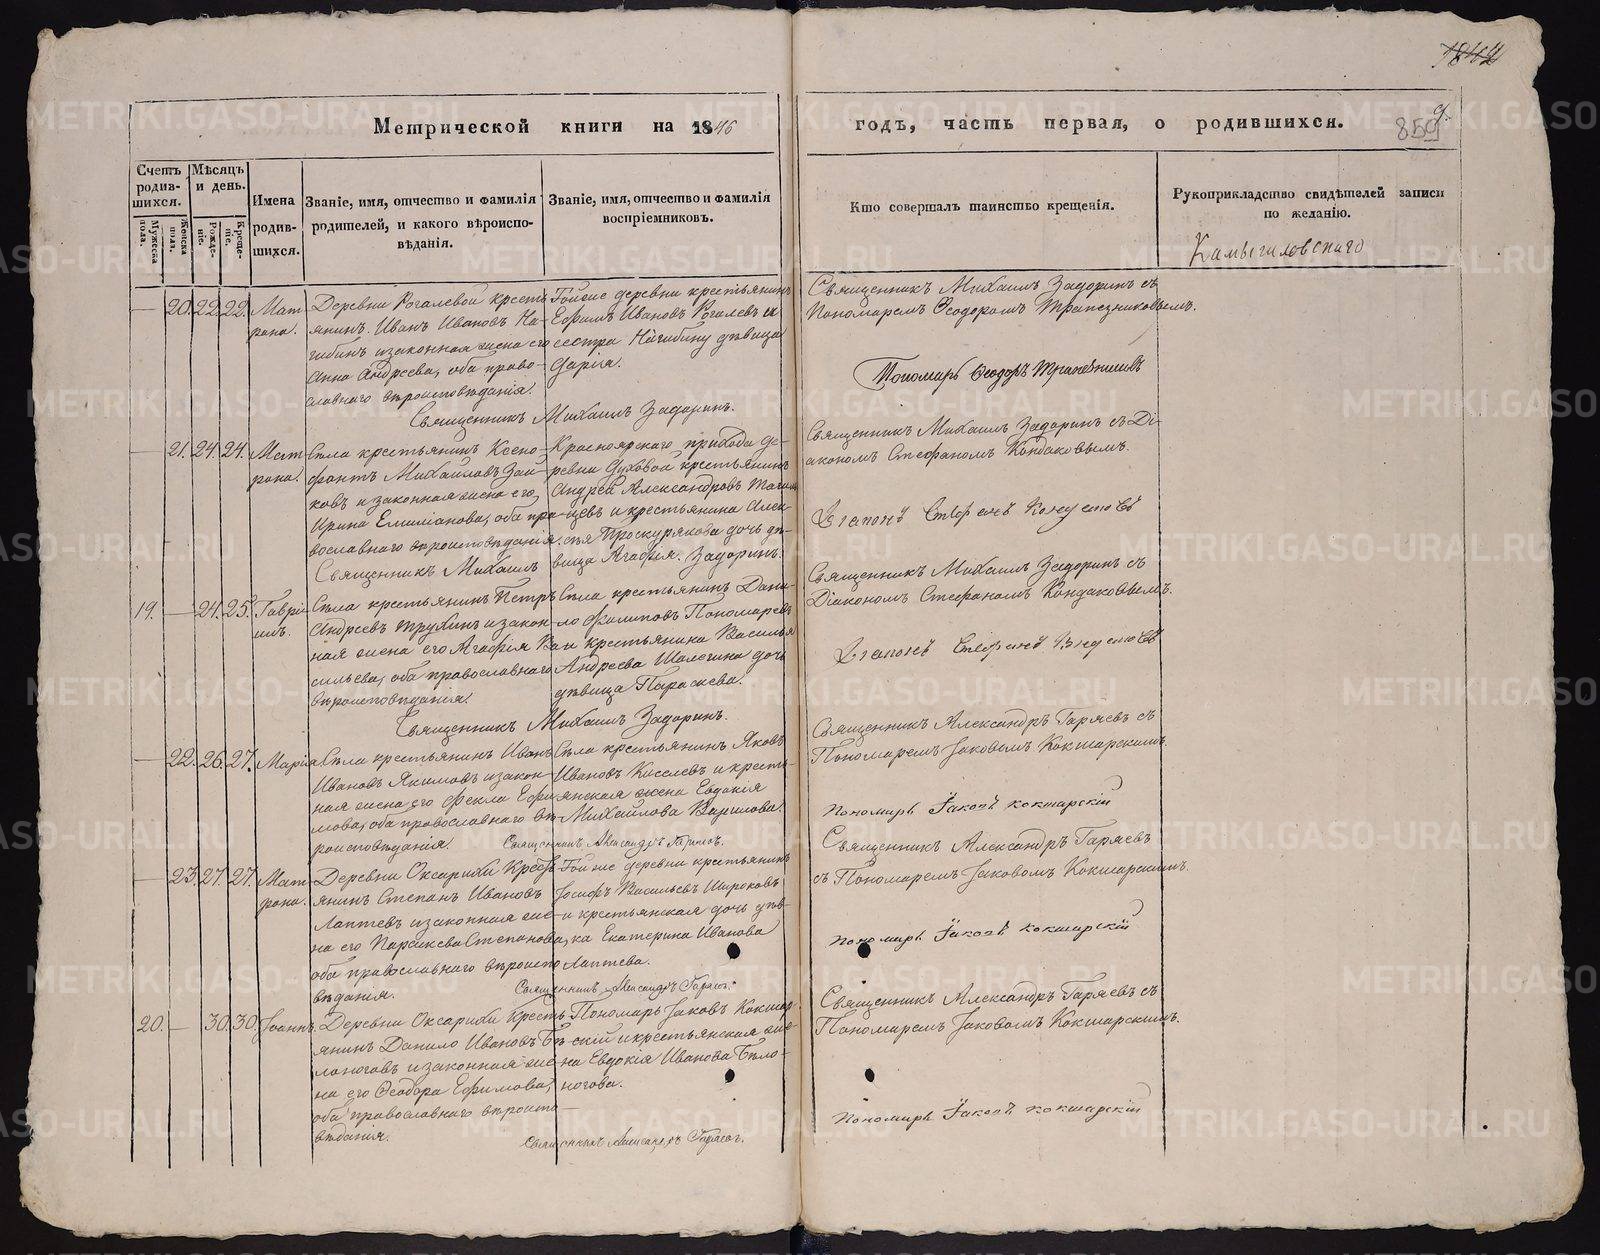 1842
859
Метрической книги на 1846
годъ, часть первая, о родившихся.
Счетъ родив-шихся.
Мужеска пола.
Женска пола.
Мѣсяцъ и день.
Рожде-ніе.
Креще-ніе.
Имена родив-шихся.
Званіе, имя, отчество и фамилія родителей, и какого вѣроиспо-вѣданія.
Званіе, имя, отчество и фамилія воспріемниковъ.
Кто совершалъ таинство крещенія.
Рукоприкладство свидѣтелей записи по желанію.
Камышловскаго
— 20. 22. 22. Мат-рона.
Деревни Рогалевой крестъ-
янинъ Иванъ Ивановъ На-
гибинъ и законная жена его
Анна Андреева, оба право-
славнаго вѣроисповѣданія.
Тойже деревни крестьянинъ
Ефимъ Ивановъ Рогалевъ и
сестра Нагибину дѣвица
Дарія.
Священникъ Михаилъ Задоринъ.
Священникъ Михаилъ Задоринъ съ
Пономаремъ Ѳеодоромъ Трапезниковымъ.
Пономарь Ѳеодоръ Трапезниковъ
— 21. 24. 24. Мат-рона.
Села крестьянинъ Ксено-
фонтъ Михайловъ Зай-
ковъ и законная жена его
Ирина Емиліанова, оба пра-
вославнаго вѣроисповѣданія.
Красноярскаго прихода де-
ревни Духовой крестьянинъ
Андрей Александровъ
и крестьянина Алек-
сѣя Проскурякова дочь дѣ-
вица Агафія.
Священникъ Михаилъ Задоринъ.
Священникъ Михаилъ Задоринъ съ Ді-
акономъ Стефаномъ Кондаковымъ.
Діаконъ Стефанъ Кондаковъ
19. — 24. 25. Гаврі-илъ.
Села крестьянинъ Петръ
Андреевъ Трухинъ и закон-
ная жена его Агафія Ва-
сильева, оба православнаго
вѣроисповѣданія.
Села крестьянинъ Дани-
ло Филиповъ Пономаревъ
и крестьянина Василья
Андреева Шалегина дочь
дѣвица Параскева.
Священникъ Михаилъ Задоринъ.
Священникъ Михаилъ Задоринъ съ
Діакономъ Стефаномъ Кондаковымъ.
Діаконъ Стефанъ Кондаковъ
— 22. 26. 27. Марія
Села крестьянинъ Иванъ
Ивановъ Якимовъ и закон-
ная жена его Фекла Ефи-
мова, оба православнаго вѣ-
роисповѣданія.
Села крестьянинъ Яковъ
Ивановъ Киселевъ и кресть-
янская жена Евдокія
Михайлова
Священникъ Александръ Гаряевъ.
Священникъ Александръ Гаряевъ съ
Пономаремъ Іаковомъ Кокшарскимъ.
Пономарь Іаковъ Кокшарскій
— 23. 27. 27. Мат-рона.
Деревни Оксарихи Кресть-
янинъ Степанъ Ивановъ
Лаптевъ и законная же-
на его Параскева Степанова,
оба православнаго вѣроиспо-
вѣданія.
Тойже деревни крестьянинъ
Іосифъ Васильевъ Широковъ
и крестьянская дочь дѣв-
ка Екатерина Иванова
Лаптева.
Священникъ Александръ Гаряевъ.
Священникъ Александръ Гаряевъ
съ Пономаремъ Іаковомъ Кокшарскимъ.
Пономарь Іаковъ Кокшарскій
20. — 30. 30. Іоаннъ.
Деревни Оксарихи Кресть-
янинъ Данило Ивановъ Бѣ-
лоноговъ и законная же-
на его Ѳеодора Ефимова,
оба православнаго вѣроиспо-
вѣданія.
Пономарь Іаковъ Кокшар-
скій и крестьянская же-
на Евдокія Иванова Бѣло-
ногова.
Священникъ Александръ Гаряевъ.
Священникъ Александръ Гаряевъ съ
Пономаремъ Іаковомъ Кокшарскимъ.
Пономарь Іаковъ Кокшарскій
METRIKI.GASO-URAL.RU